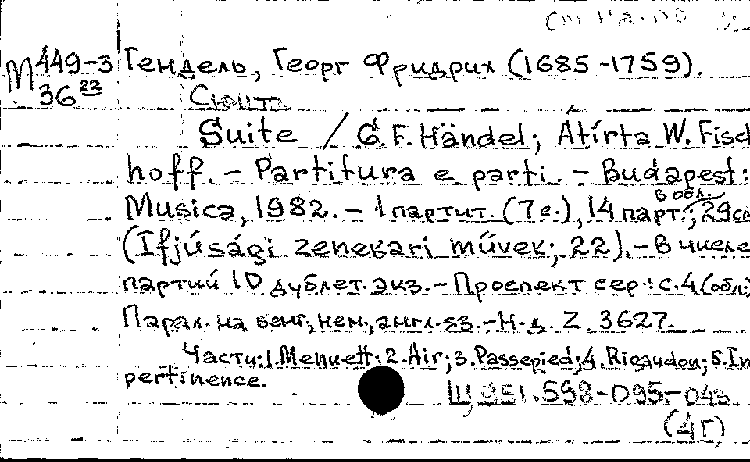 М 449-3 Гендель, Георг Фридрих (1685-1759).
36 22
Сюита
Suite / G. F. Händel; Átírta W. Fisch
hoff. - Partitura e parti. - Budapest:
Musica, 1982. - 1 партит. (7 с.), 14 парт.; 29 см
в обл.
(Ifjúsági zenekari művek; 22). - В числе
партий 10 дублет. экз. - Проспект сер.: с. 4 (обл.)
Парал. на венг., нем., англ. яз. - Н. д. Z. 3627.
Части: 1. Menuett; 2. Air; 3. Passepied; 4. Rigaudon; 5. Im
pertinence.
Щ 951.598-095
(4г)